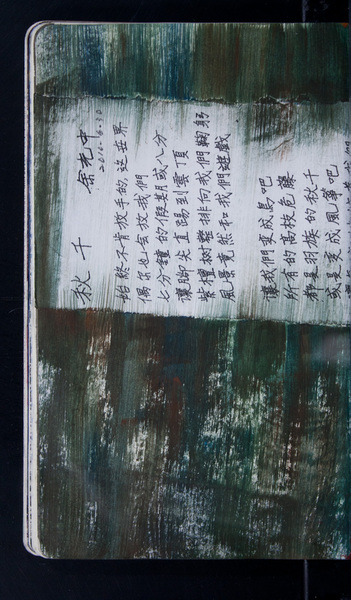 秋千 余光中
2016.6.30
始終不肯放手的 這世界
偶尔也會放我們
七分鐘的假期或八分
讓腳尖直踢到雲頂
紫檀樹整排向我們鞠躬
風景竟然和我們遊戲
讓我們變成鳥吧
所有的高枝危藤
都是羽族的秋千
或是變成風箏吧